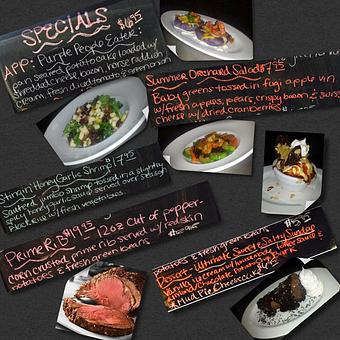 SPECIALS
APP: Purple People Eater! $6.95
pan seared potato cake loaded w/
shredded cheese, bacon, horse radish
cream, fresh diced tomato &
Summer Orchard Salad $7.95
Baby greens tossed in fuji apple vin
w/ fresh apples, pears, crispy bacon & swiss
cheese w/ dried cranberries
Stingin' Honey Garlic Shrimp $17.95
Sauteed jumbo shrimp tossed in a slightly
spicy honey garlic sauce served over
Black Rice w/ fresh vegetables
Prime Rib $19.95 12oz cut of pepper-
corn crusted prime rib served w/ redskin
potatoes & fresh green beans
potatoes & fresh green beans
Dessert - Ultimate Sweet & Salty Sundae
Vanilla ice cream w/ homemade
almond chocolate
Mud Pie Cheesecake